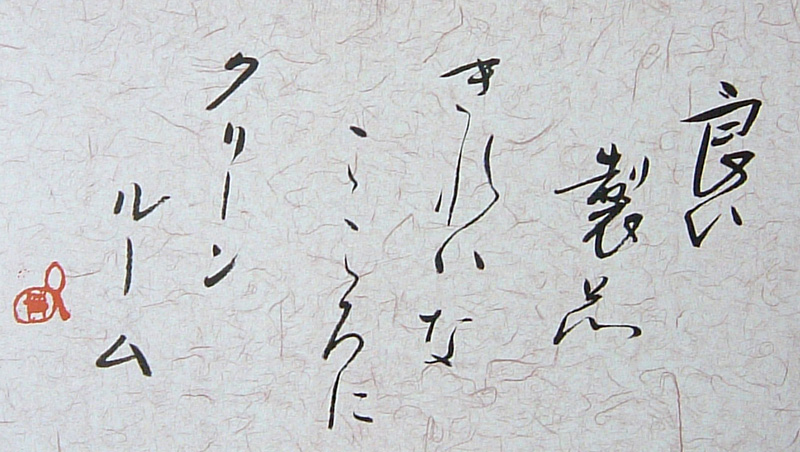 良い
製品
きれいな
こころに
クリーン
ルーム